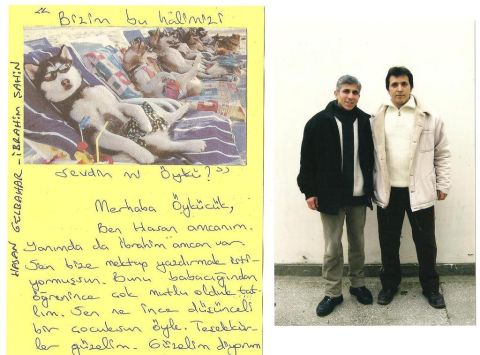 "Bizin bu hâlimizi
sevdin mi Öykü?"
HASAN GÜLBAHAR - İBRAHİM ŞAHİN
Merhaba Öykücük,
Ben Hasan amcanım.
Yanımda da İbrahim amcan var.
Sen bize mektup yazdırmak isti-
yormuşsun. Bunu babacığından
öğrenince çok mutlu olduk tat-
lım. Sen ne ince düşünceli
bir çocuksun öyle. Teşekkür-
ler güzelim. Güzelim diyorum